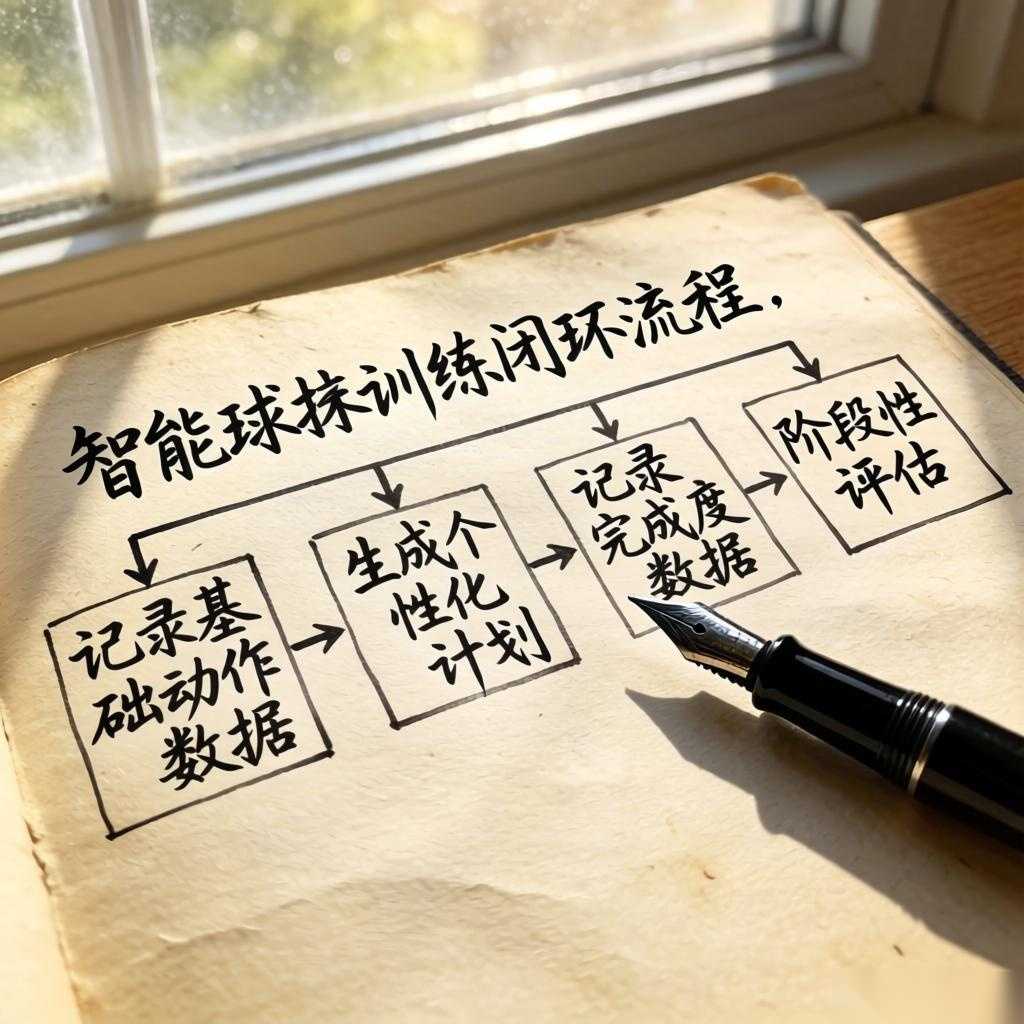 智能球抹训练闭环流程，
记录基
础动作
数据
生成个
性化
计划
记录
完成度
数据
阶段性
评估